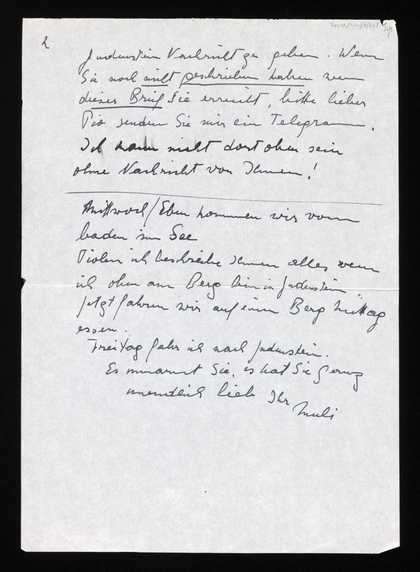 2
Judenstein Nachricht zu geben. Wenn
Sie noch nicht geschrieben haben wenn
dieser Brief Sie erreicht, bitte lieber
Pio senden Sie mir ein Telegram.
Ich kann nicht dort oben sein
ohne Nachricht von Ihnen!
Mittwoch/Eben kommen wir vom
baden im See
ich beschreibe Ihnen alles wenn
ich oben am Berg bin in Judenstein.
Jetzt fahren wir auf einen Berg Mittag
essen.
Freitag fahr ich nach Judenstein.
Es umarmt Sie, es hat Sie ganz
unendlich lieb Ihr